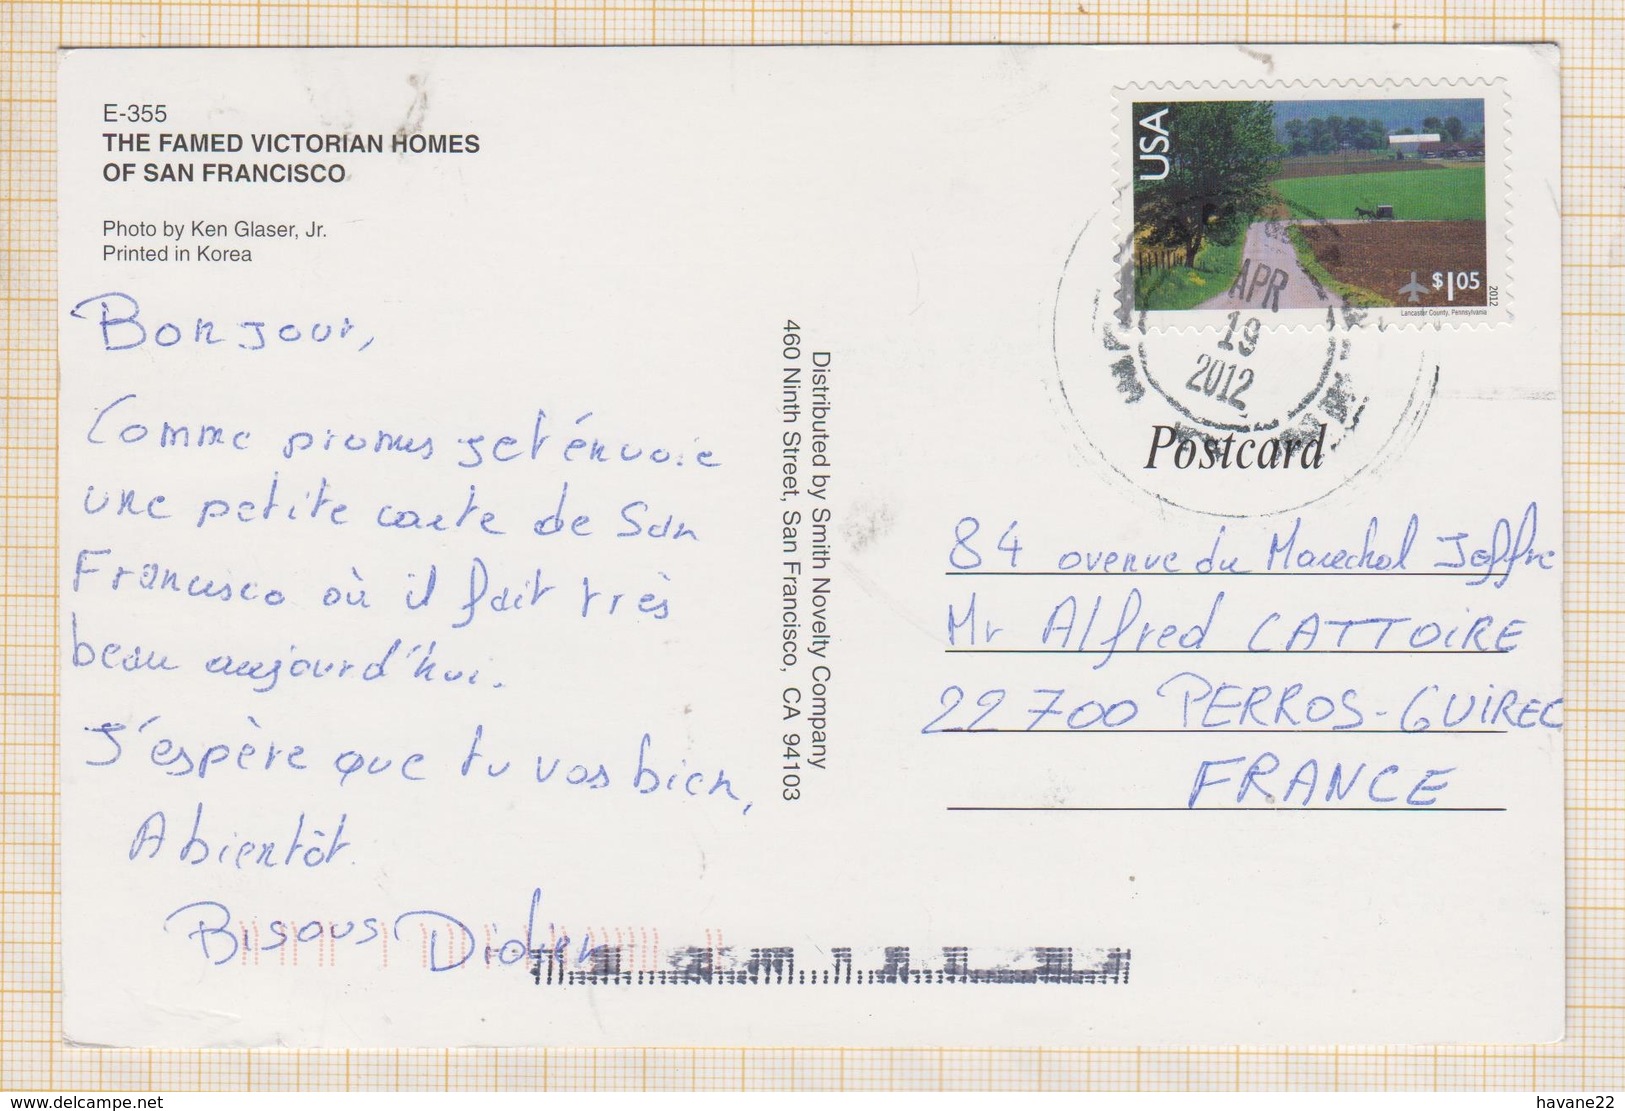 E-355
THE FAMED VICTORIAN HOMES
OF SAN FRANCISCO
Photo by Ken Glaser, Jr.
Printed in Korea
Bonjour,
Comme promis je t'envoie
une petite carte de San
Francisco où il fait très
beau aujourd'hui.
J'espère que tu vas bien,
A bientôt.
Bisous Didier
Distributed by Smith Novelty Company
460 Ninth Street, San Francisco, CA 94103
USA
$1.05
2012
Lancaster County, Pennsylvania
APR
19
2012
Postcard
84 avenue du Marechal Joffre
Mr Alfred CATTOIRE
22700 PERROS-GUIREC
FRANCE
http://www.delcampe.net
havane22